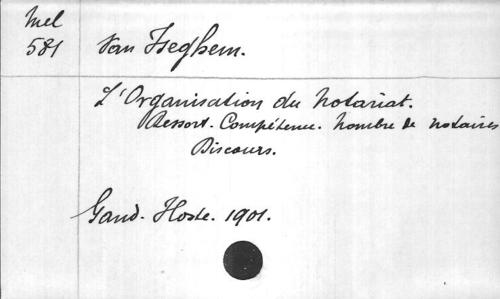 Mel
581
Van Iseghem.
L'Organisation du Notariat.
Ressort. Compétence. Nombre de notaires
Discours.
Gand. Hoste. 1901.